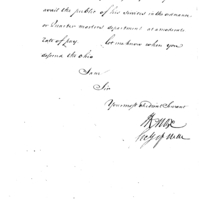 avail the public of his services in the ordnance
or Quarter masters department at a moderate
rate of pay. let me know when you
descend the Ohio
I am
Sir
Your most obedient Servant
H Knox
Secy of War